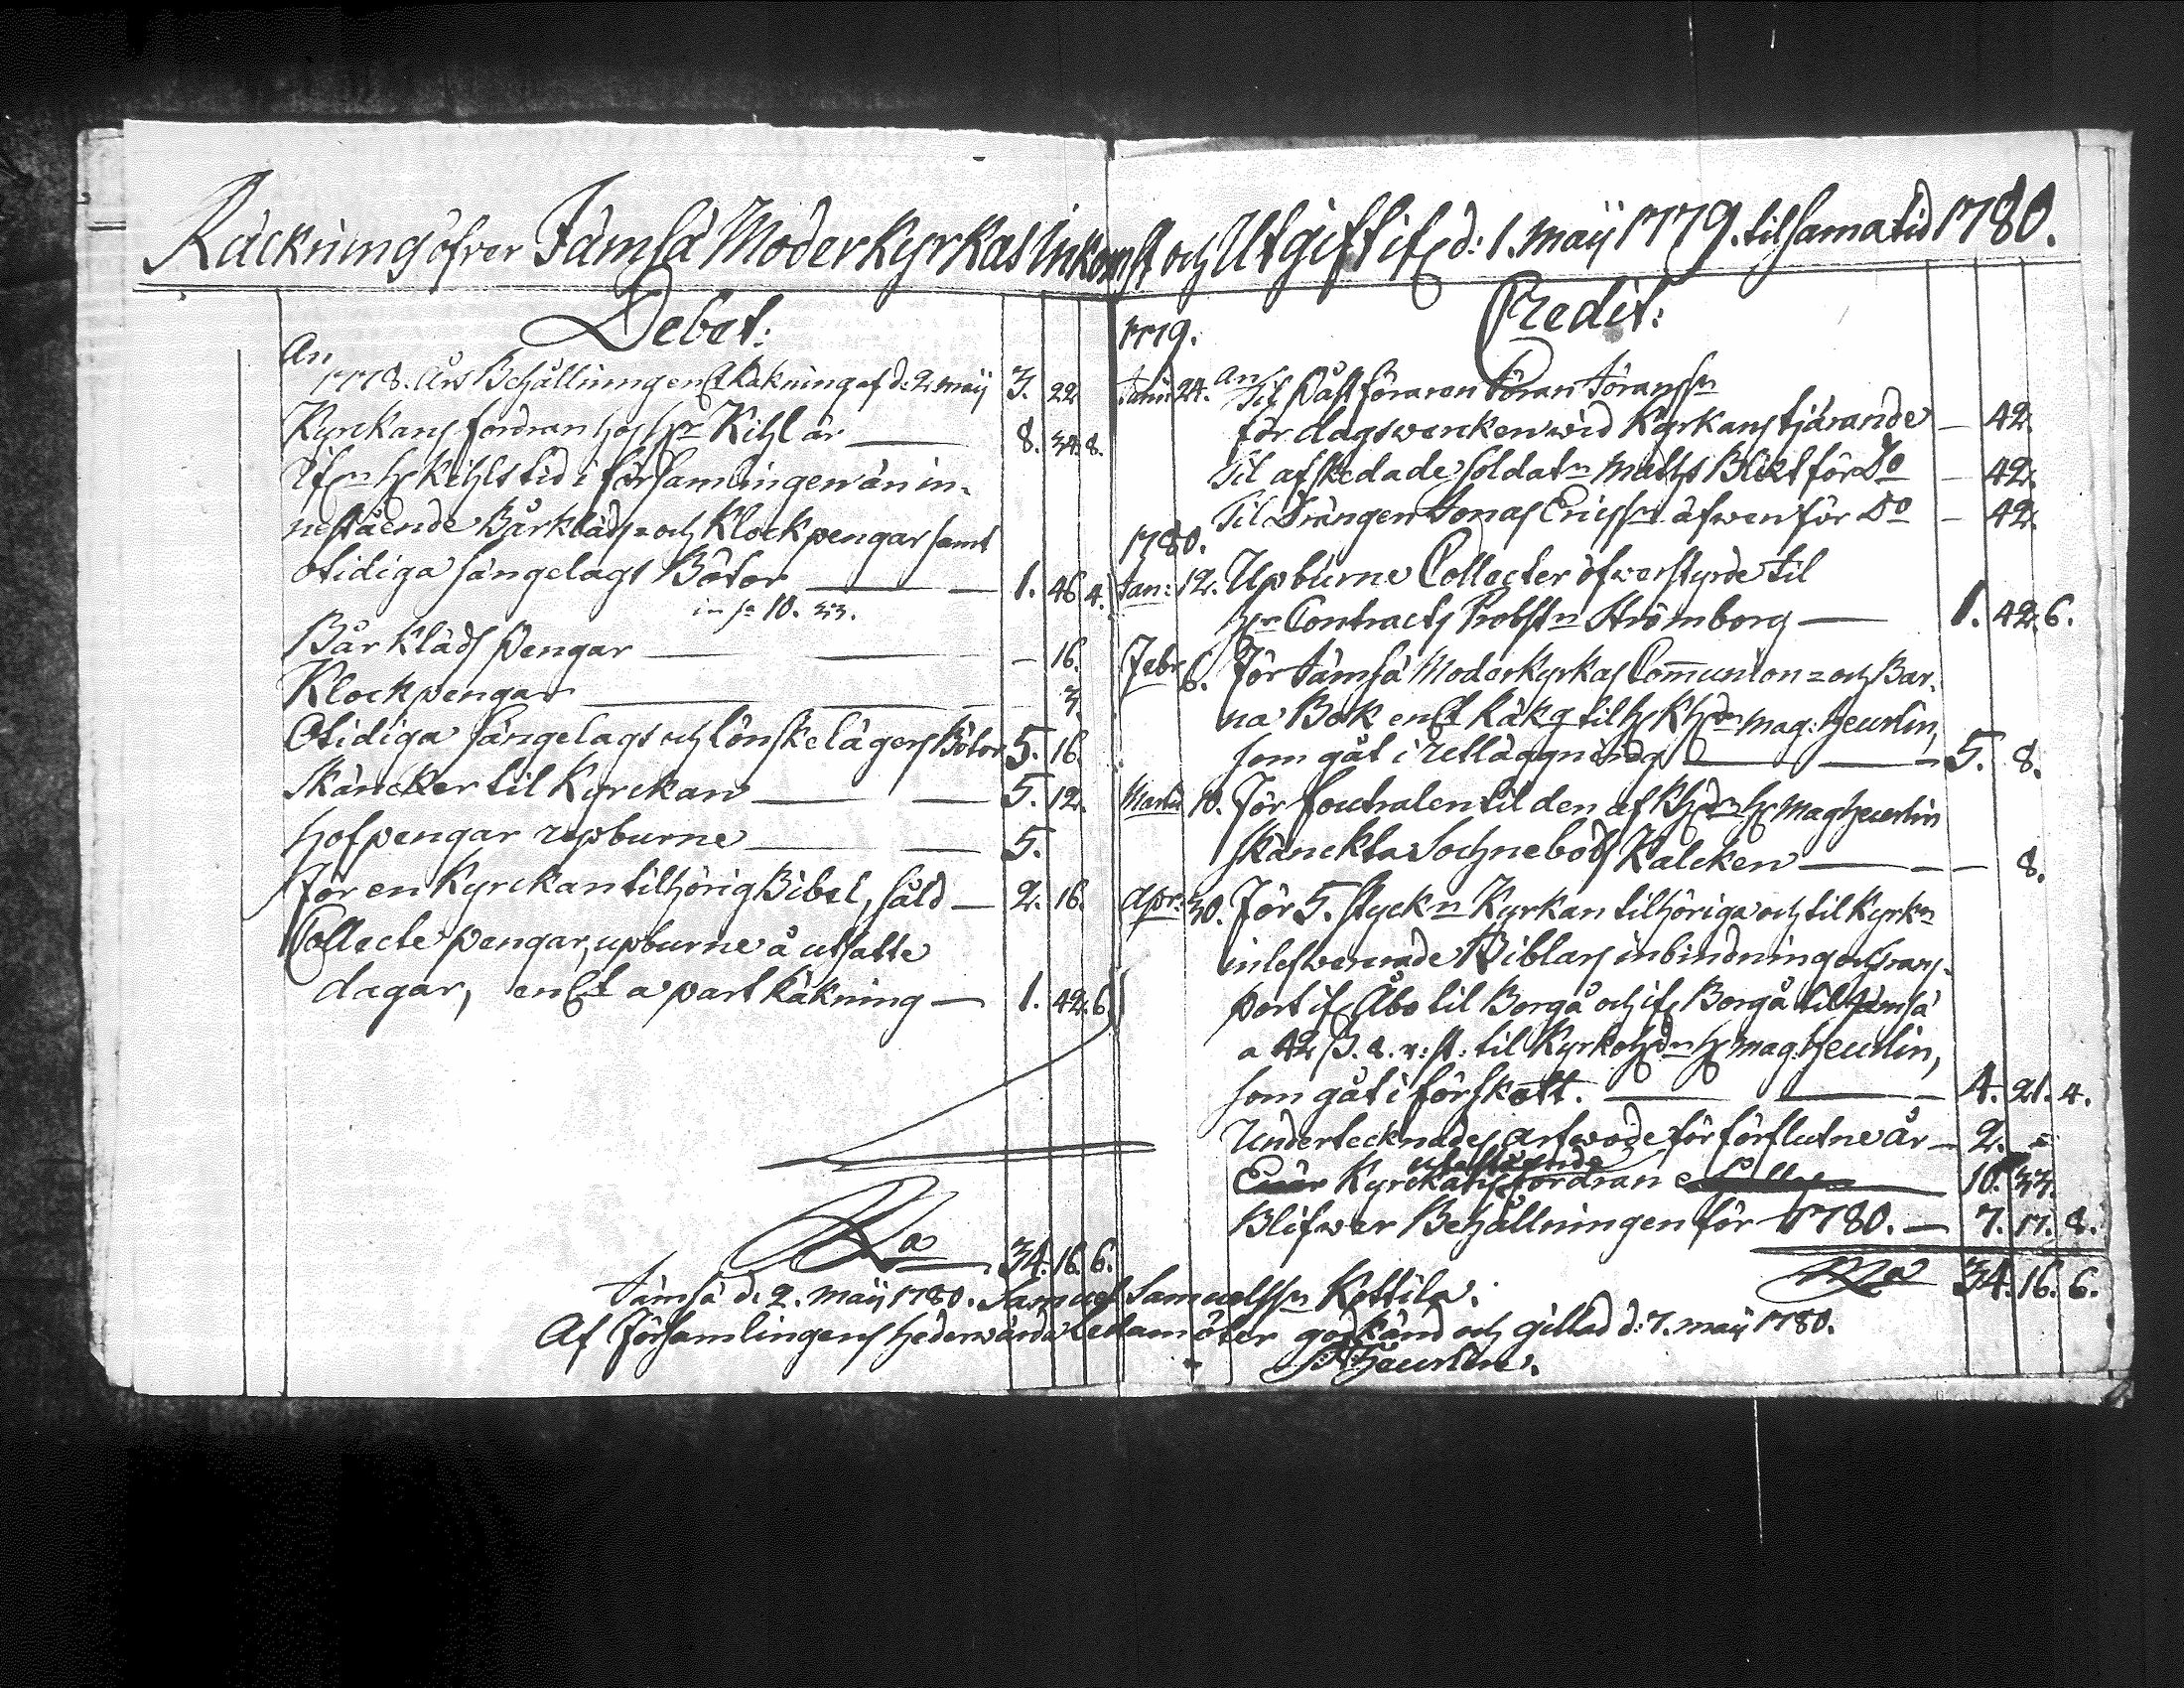 Räckning öfver Jämsä Moderkyrkas Inkomst och Utgift ifr. d: 1. maÿ 1779. til sama tid 1780.
Debet:
An
1778. Års Behållning enl. Räkning af d. 2. maÿ 3. 22
Kyrckans fordran hos Hr Kihl är 8. 34. 8.
Ifrn H. Kihls tid i församlingen än in-
nestående Bårkläds- och Klockpengar samt
otidiga sängelags Böter 1. 46 4.
in sa 10. 33.
Bårkläds Pengar - 16.
Klockpengar 3.
Otidiga sängelags och lönskelägers Böter 5. 16.
Skäncker til Kyrckan 5. 12.
Hofpengar upburne 5.
För en Kyrckan tilhörig Bibel, såld 2. 16.
Collecte pengar, upburne å utsatte
dagar, enl. apart Räkning 1. 42. 6.
Sa 34. 16. 6.
Credit:
1779.
24. An Til Påstföraren Jöran Jöransson
för dagswercken wid Kyrkans tjärande - 42.
Til afskedade soldatn Maths Blickt för Do - 42.
Til Drängen Jonas Ericsson äfwen för Do - 42.
1780.
Jan: 12. Upburne Collecter öfwerstyrde til
Hr Contracts Probstn Strömborg 1. 42. 6.
Febr 6. För Jämsä Moderkyrkas Communion- och Bar-
na Bok enl. Räkg til H. Khdn mag: Heurlin,
som gåt i utläggning 5. 8.
Martii 10. För foutralen til den af Khdn H. Mag Heurlin
skänckta Sochnebods Kalcken 8.
Apr: 30. För 5. styckn Kyrkan tilhöriga och til Kyrkn
inlefwererade Biblars inbindning och trans-
port ifr. Åbo til Borgå och ifr. Borgå til Jämsä
a 42 ß. 8. r: st: til Kyrkohdn H. mag: Heurlin,
som gåt i förskott. 4. 21. 4.
Undertecknades arfwode för förflutne år 2. -
Kyrckans utestående fordran 10. 33.
Blifwer Behållningen för 1780. 7. 17. 8.
Sa 34. 16. 6.
Jämsä d. 2. maÿ 1780. Samuel Samuelsson Kottila.
Af Församlingens hederwärda Ledamöter godkänd och gillad d: 7. maÿ 1780.
Heurlin.